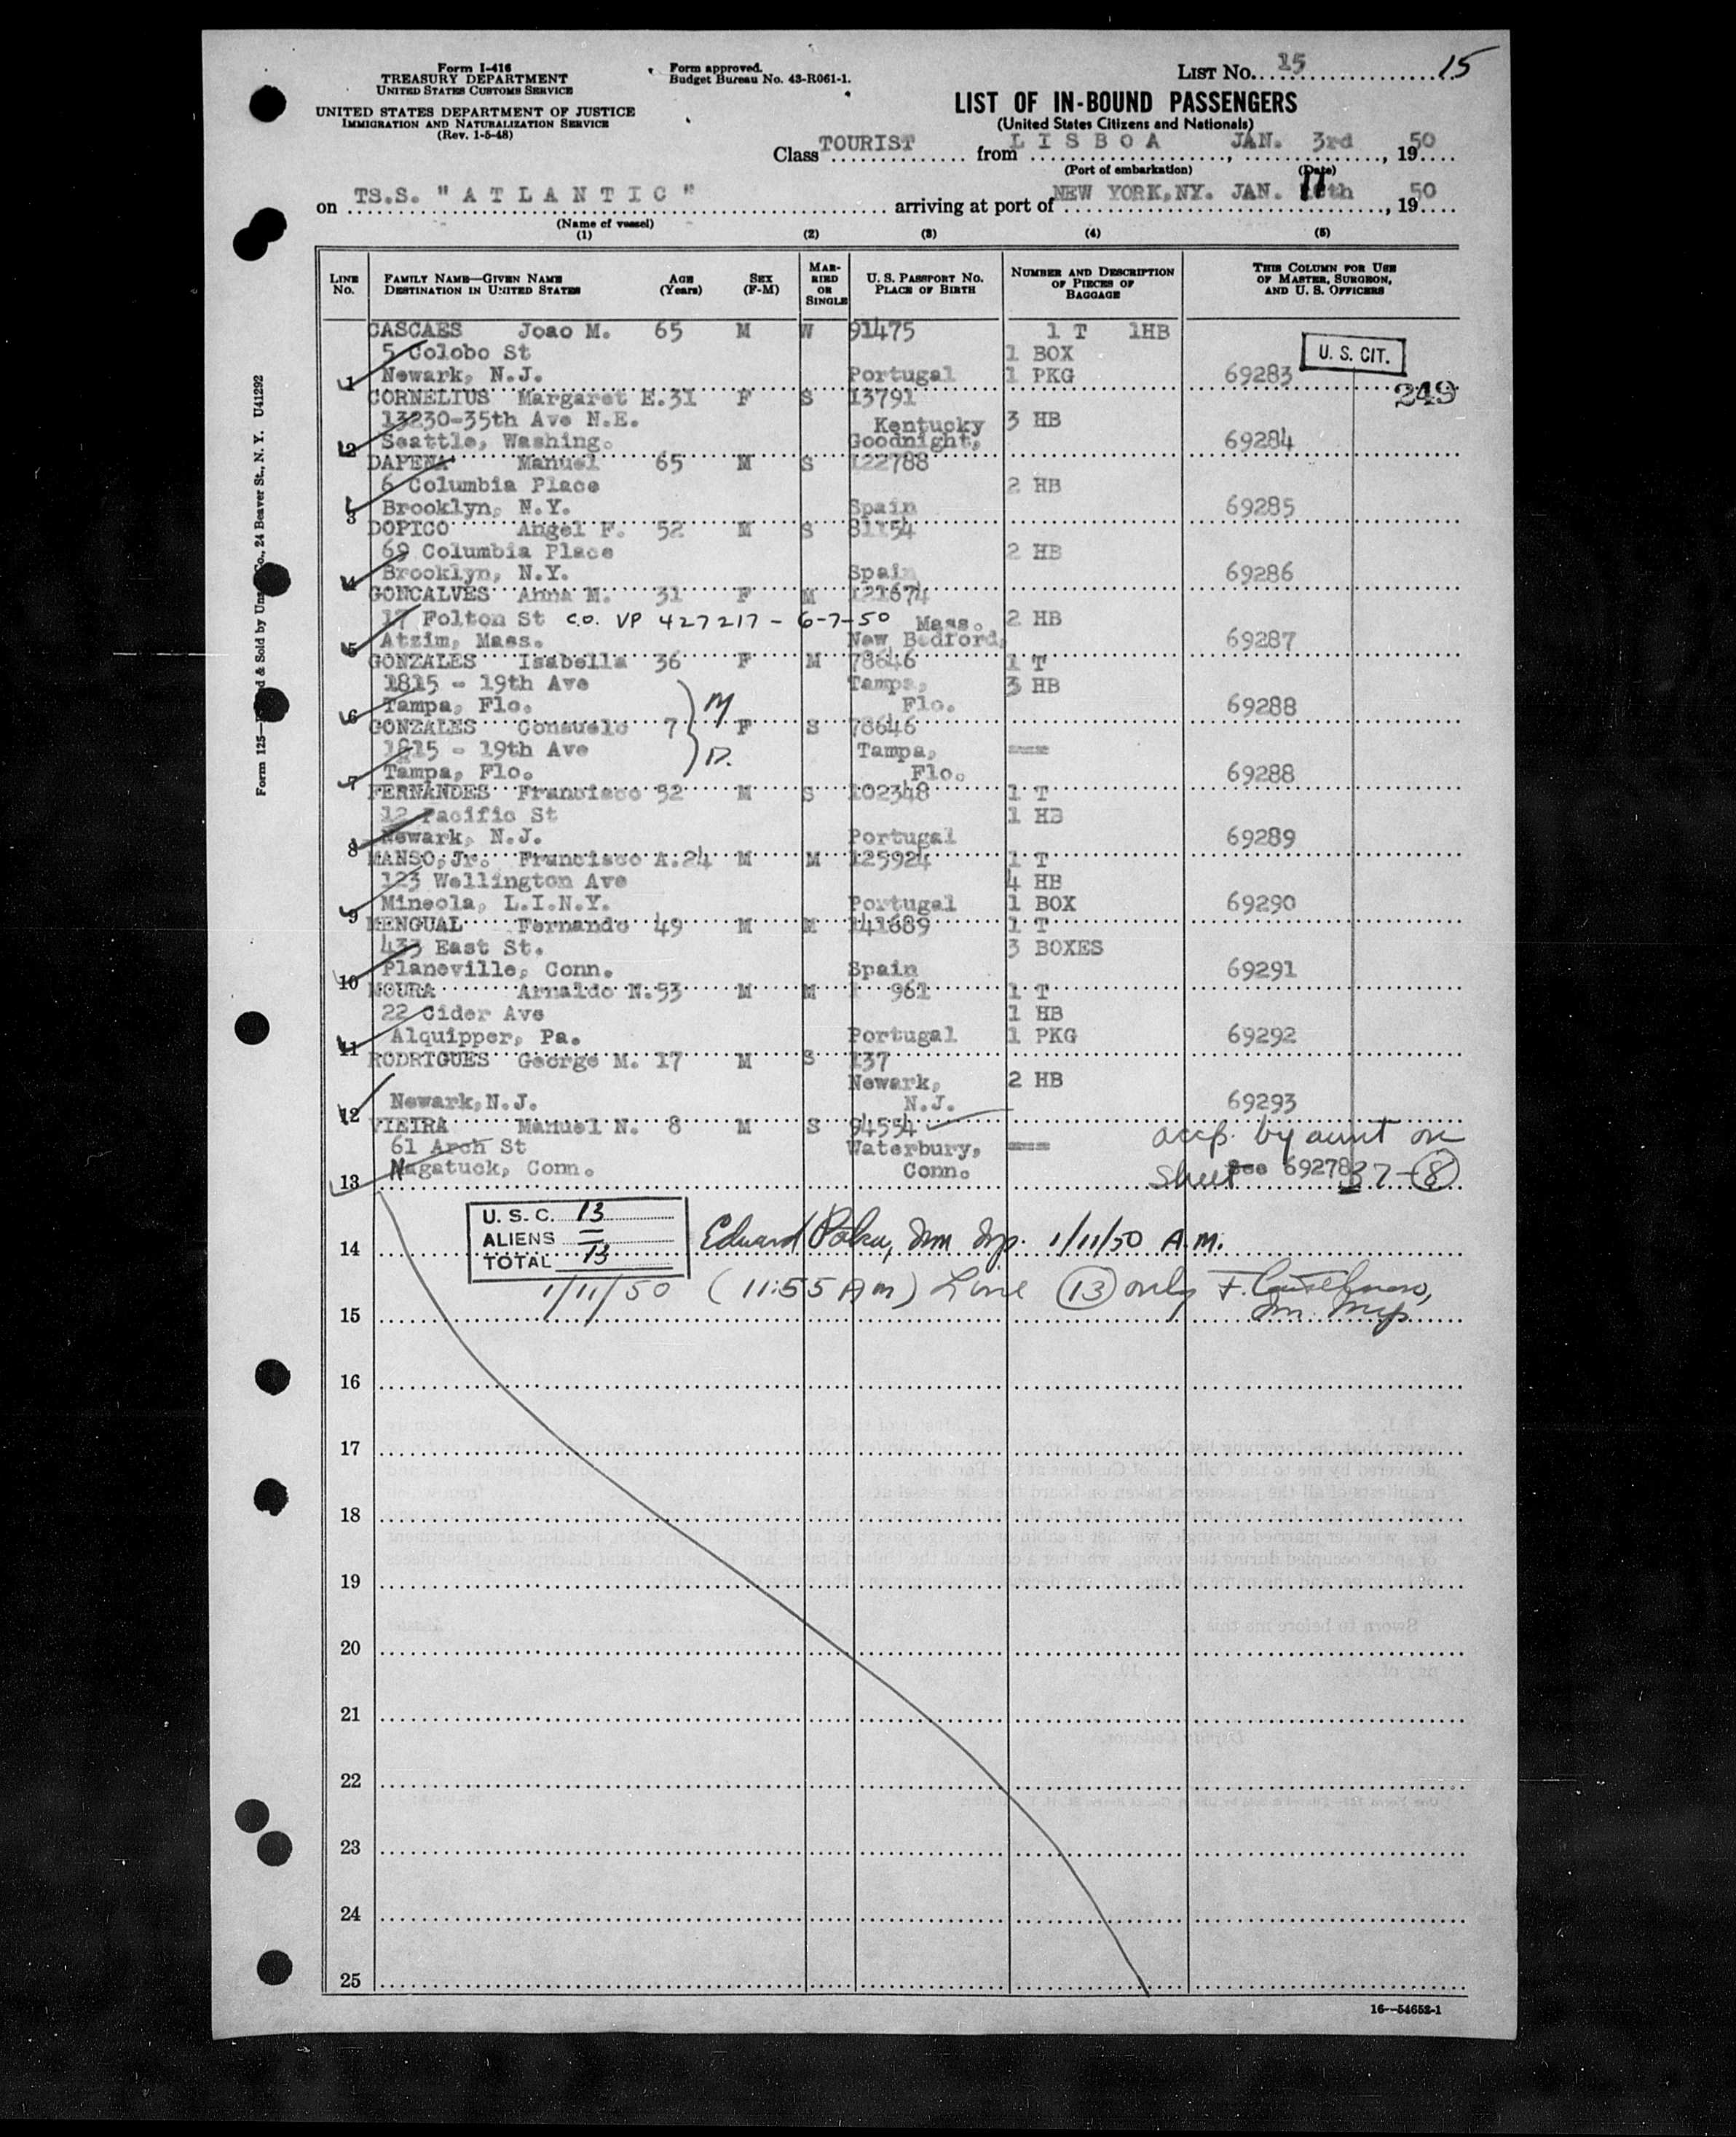 Form I-416
TREASURY DEPARTMENT
UNITED STATES CUSTOMS SERVICE
UNITED STATES DEPARTMENT OF JUSTICE
IMMIGRATION AND NATURALIZATION SERVICE
(Rev. 1-5-48)
Form approved.
Budget Bureau No. 43-R061-1.
LIST NO. 15 15
LIST OF IN-BOUND PASSENGERS
(United States Citizens and Nationals)
Class TOURIST from L I S B O A JAN. 3rd, 1950
(Port of embarkation) (Date)
on TS.S. " A T L A N T I C " arriving at port of NEW YORK,NY. JAN. 11th, 1950
(Name of vessel)
(1) (2) (3) (4) (5)
LINE No. FAMILY NAME—GIVEN NAME DESTINATION IN UNITED STATES AGE (Years) SEX (F-M) MARRIED OR SINGLE U. S. PASSPORT NO. PLACE OF BIRTH NUMBER AND DESCRIPTION OF PIECES OF BAGGAGE THIS COLUMN FOR USE OF MASTER, SURGEON, AND U. S. OFFICERS
CASCAES Joao M. 65 M W 91475 1 T 1HB
5 Colobo St 1 BOX U. S. CIT.
1 Newark, N.J. Portugal 1 PKG 69283
249
CORNELIUS Margaret E. 31 F S 13791
13230-35th Ave N.E. Kentucky 3 HB
2 Seattle, Washing. Goodnight, 69284
DAPENA Manuel 65 M S 122788
6 Columbia Place 2 HB
3 Brooklyn, N.Y. Spain 69285
DOPICO Angel F. 52 M S 81154
69 Columbia Place 2 HB
4 Brooklyn, N.Y. Spain 69286
GONCALVES Anna M. 31 F M 121674
17 Folton St C.O. VP 427217 - 6-7-50 Mass. 2 HB
5 Atzim, Mass. New Bedford, 69287
GONZALES Isabella 36 F M 78646 1 T
1815 - 19th Ave Tampa, 3 HB
6 Tampa, Flo. M Flo. 69288
GONZALES Consuelo 7 F S 78646
1815 - 19th Ave D. Tampa, ===
7 Tampa, Flo. Flo. 69288
FERNANDES Francisco 52 M S 102348 1 T
12 Pacific St 1 HB
8 Newark, N.J. Portugal 69289
MANSO, Jr. Francisco A. 24 M M 125924 1 T
123 Wellington Ave 4 HB
9 Mineola, L.I.N.Y. Portugal 1 BOX 69290
MENGUAL Fernando 49 M M 141689 1 T
433 East St. 3 BOXES
10 Planeville, Conn. Spain 69291
MOURA Arnaldo N. 53 M M 961 1 T
22 Cider Ave 1 HB
11 Alquipper, Pa. Portugal 1 PKG 69292
RODRIGUES George M. 17 M S 137
Newark, 2 HB
12 Newark, N.J. N.J. 69293
VIEIRA Manuel N. 8 M S 94554
61 Arch St Waterbury, === accp. by aunt on
13 Nagatuck, Conn. Conn. sheet see 69278 37-8
U. S. C. 13
ALIENS =
TOTAL 13
14 Edward 1/11/50 A.M.
1/11/50 (11:55 AM) Line 13 only F.
15
16
17
18
19
20
21
22
23
24
25
16—54652-1
Co., 24 Beaver St., N. Y. U41292
Form 125— & Sold by